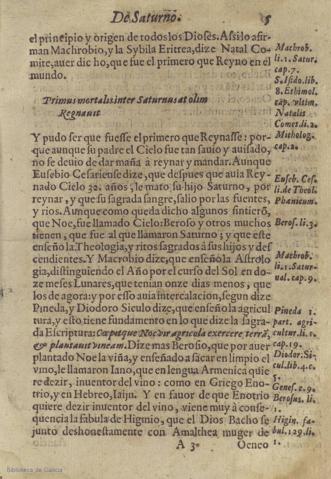 De Saturno.
5
el principio y origen de todos los Dioses. Assi lo afir-
man Machrobio, y la Sybila Eritrea, dize Natal Co-
mite, auer dicho, que fue el primero que Reyno en el
mundo.
Primus mortalis inter Saturnus at olim
Regnauit
Y pudo ser que fuesse el primero que Reynasse: por-
que aunque su padre el Cielo fue tan sauio, y auisado,
no se deuio de dar maña à reynar y mandar. Aunque
Eusebio Cesariense dize, que despues que auia Rey-
nado Cielo 30. años, le mato su hijo Saturno, por
reynar, y que su sagrada sangre, salio por las fuentes,
y rios. Aunque como queda dicho algunos sintierõ,
que Noe, fue llamado Cielo: Beroso y otros muchos
tienen, que fue al que llamaron Saturno; y que este
enseño la Theologia, y ritos sagrados à sus hijos y des
cendientes. Y Macrobio dize, que enseñò la Astrolo
gia, distinguiendo el Año por el curso del Sol en do-
ze meses Lunares, que tenian onze dias menos, que
los de agora: y por esso auia intercalacion, segun dize
Pineda, y Diodoro Siculo dize, que enseñò la agricul
tura, y esto tiene fundamento en lo que dize la sagra-
da Escriptura: Cœpitque Noe vir agricola exercere terrã,
& plantauit vineam. Dize mas Beroso, que por auer
plantado Noe la viña, y enseñado à sacar en limpio el
vino, le llamaron Iano, que en lengua Armenica quie
re dezir, inuentor del vino: como en Griego Eno-
trio, y en Hebreo, Iaijn. Y en fauor de que Enotrio
quiere dezir inuentor del vino, viene muy à conse-
quencia la fabula de Higinio, que el Dios Bacho se
junto deshonestamente con Amalthea muger de
A 3
Oeneo
Machrob.
li. 1. Satur.
cap. 7.
S. Isido. lib.
8. Ethimol.
cap. vltim.
Natalis
Comet. li. 2.
Mitholog.
cap. 2.
Euseb. Ces.
li. de Theol.
Phænicum.
Beros. li. 3.
Machrob.
li. 1. Satur-
nal. cap. 9.
Pineda 1.
part. agri-
cultur. li. 1.
cap. 19.
Diodor. Si-
cul. lib. 4. c.
5.
Genes. c. 9.
Berosus. li.
3.
Higin. fa-
bul. 129. li.
1.
Biblioteca de Galicia